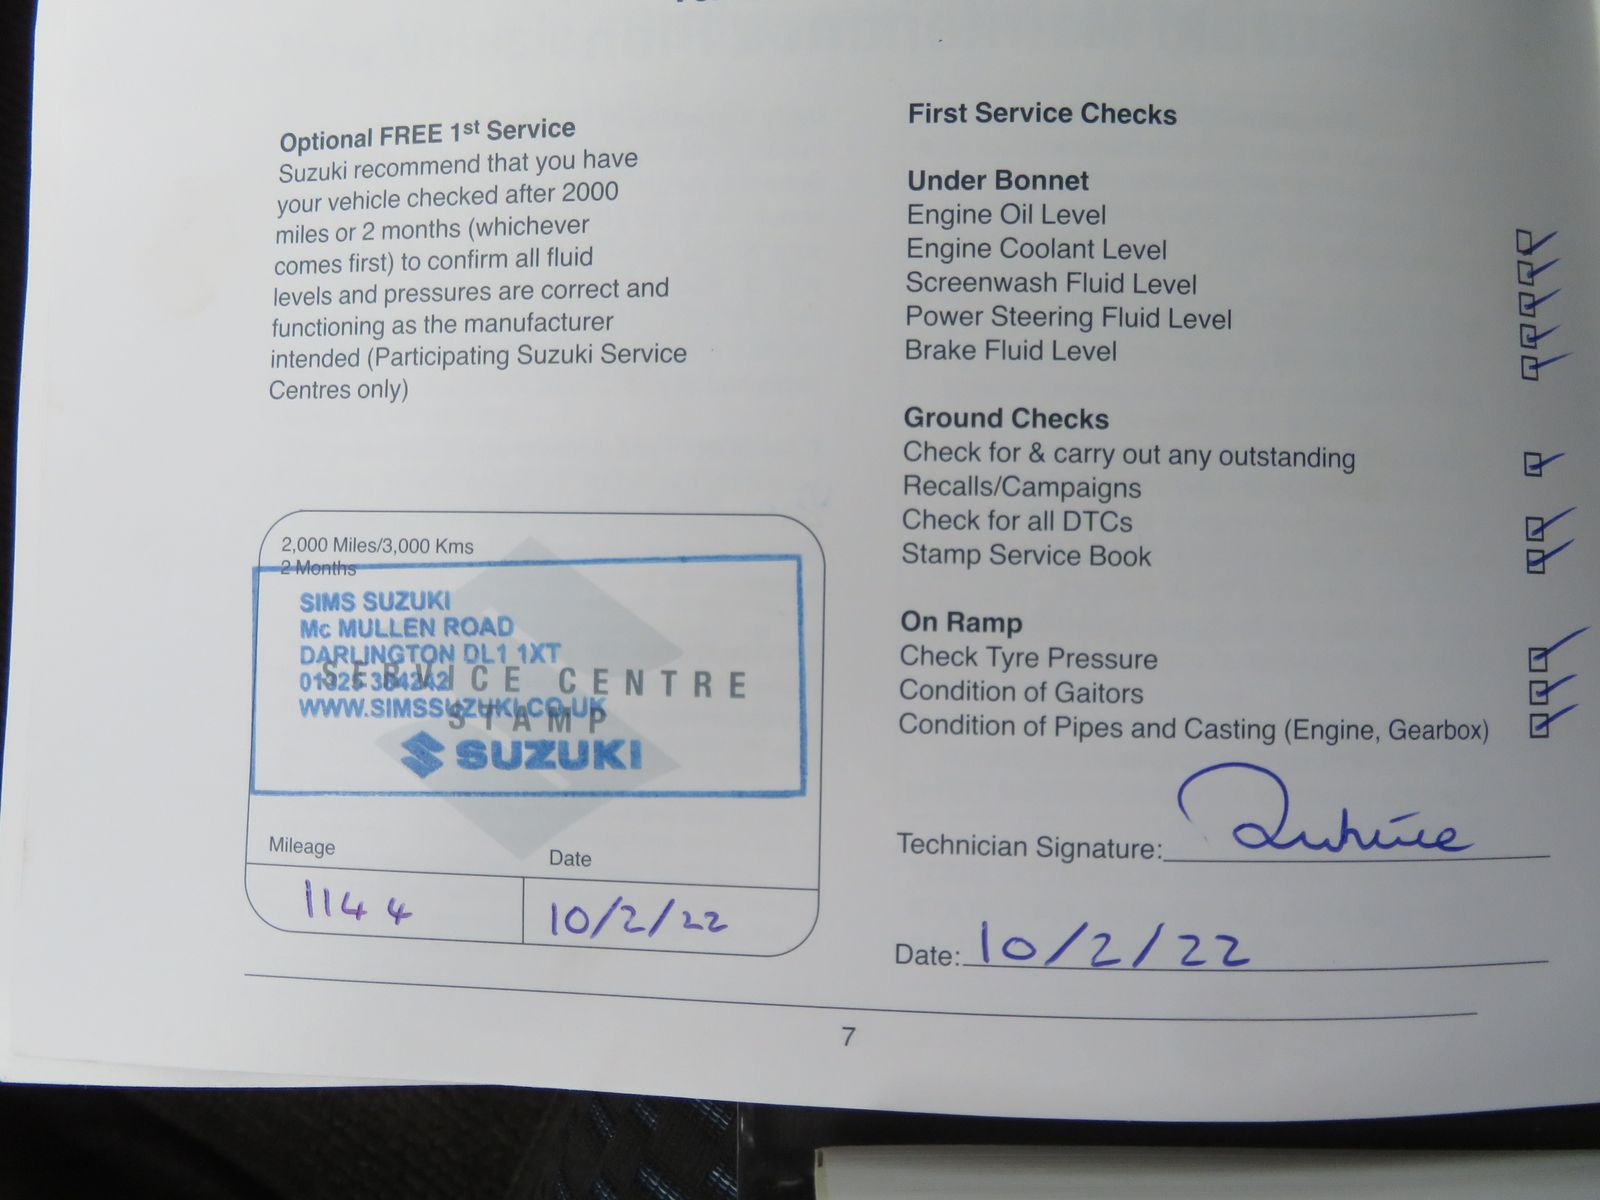 Optional FREE 1st Service
Suzuki recommend that you have
your vehicle checked after 2000
miles or 2 months (whichever
comes first) to confirm all fluid
levels and pressures are correct and
functioning as the manufacturer
intended (Participating Suzuki Service
Centres only)
2,000 Miles/3,000 Kms
2 Months
SIMS SUZUKI
Mc MULLEN ROAD
DARLINGTON DL1 1XT
01325 384242
WWW.SIMSSUZUKI.CO.UK
SERVICE CENTRE
STAMP
SUZUKI
Mileage
Date
1144
10/2/22
First Service Checks
Under Bonnet
Engine Oil Level
Engine Coolant Level
Screenwash Fluid Level
Power Steering Fluid Level
Brake Fluid Level
Ground Checks
Check for & carry out any outstanding
Recalls/Campaigns
Check for all DTCs
Stamp Service Book
On Ramp
Check Tyre Pressure
Condition of Gaitors
Condition of Pipes and Casting (Engine, Gearbox)
Technician Signature:
Date: 10/2/22
7